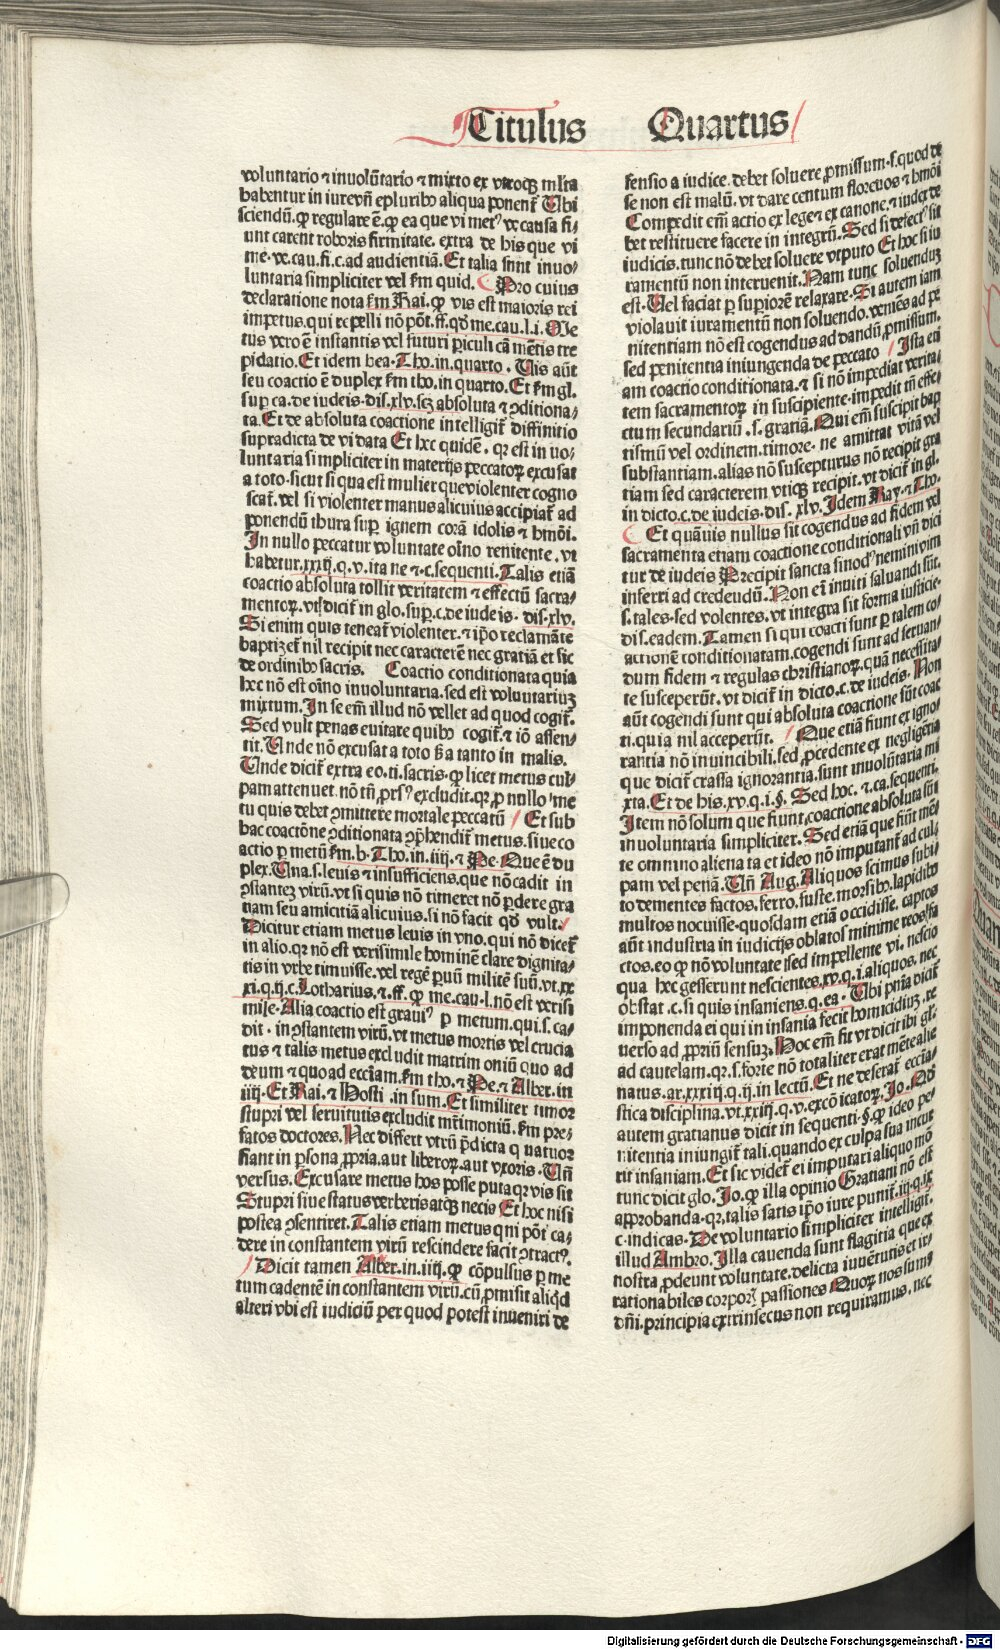 Titulus Quartus
voluntario ⁊ involūtario ⁊ mixto ex vtroqꝫ mlta
habentur in iure vñ epluribꝰ aliqua ponent᷑ Ubi
sciendū. ꝙ regulare ē. ꝙ ea que vi metꝰ ve causa fi⸗
unt carent roboris firmitate. extra de his que vi
me. ve. cau. fi. c. ad audientiā. Et talia sunt inuo⸗
luntaria simpliciter vel ẜm quid. Pro cuius
declaratione nota ẜm Rai. ꝙ vis est maioris rei
impetus. qui repelli nō pōt. ff. qđ me. cau. l. i. Me
tus vero ē instantis vel futuri ꝑiculi cā mētis tre
pidatio. Et idem bea. Tho. in. quarto. Uis aūt
seu coactio ē duplex ẜm tho. in quarto. Et ẜm gl.
suꝑ ca. de iudeis. dis. xlv. scꝫ absoluta ⁊ ꝯditiona⸗
ta. Et de absoluta coactione intelligit᷑ diffinitio
supradicta de vi data Et hec quidē. qꝛ est in uo⸗
luntaria simpliciter in materijs peccatoꝝ excusat
a toto. sicut si qua est mulier que violenter cogno
scat᷑. vel si violenter manus alicuius accipiat᷑ ad
ponendū thura suꝑ ignem corā idolis ⁊ hmōi.
In nullo peccatur voluntate oīno renitente. vt
habetur. xxxij. q. v. ita ne ⁊. c. sequenti. Talis etiā
coactio absoluta tollit veritatem ⁊ effectū sacra⸗
mentoꝝ. vt dicit᷑ in glo. suꝑ. c. de iudeis. dis. xlv.
Si enim quis teneat᷑ violenter. ⁊ ip̄o reclamāte
baptizet᷑ nil recipit nec caracterē nec gratiā et sic
de ordinibꝰ sacris. Coactio conditionata quia
hec nō est oīno inuoluntaria. sed est voluntariuꝫ
mixtum. In se em̄ illud nō vellet ad quod cogit᷑.
Sed vult penas euitare quibꝰ cogit᷑. ⁊ iō assen⸗
tit. Unde nō excusat a toto ß a tanto in malis.
Unde dicit᷑ extra eo. ti. sacris. ꝙ licet metus cul⸗
pam attenuet. nō tn̄ ꝓrsꝰ excludit. qꝛ ꝓ nullo me
tu quis debet ꝯmittere mortale peccatū Et sub
hac coactōne ꝯditionata ꝯp̄hendit᷑ metus. siue co
actio ꝑ metū ẜm. b. Tho. in. iiij. ⁊ Pe. Que ē du
plex. Una. s. leuis ⁊ insufficiens. que nō cadit in
ꝯstantez virū. vt si quis nō timeret nō ꝑdere gra
tiam seu amicitiā alicuius. si nō facit qđ vult.
Dicitur etiam metus leuis in vno. qui nō dicet᷑
in alio. qꝛ nō est verisimile hominē clare dignita⸗
tis in vrbe timuisse. vel regē ꝑuū militē suū. vt. xx
xi. q. ij. c. Lotharius. ⁊. ff. ꝙ me. cau. l. nō est verisi
mile. Alia coactio est grauiꝰ ꝑ metum. qui. s. ca⸗
dit. in ꝯstantem virū. vt metus mortis vel crucia
tus ⁊ talis metus excludit matrimoniū quo ad
deum ⁊ quo ad ecciam. ẜm tho. ⁊ Pe. ⁊ Alber. in
iiij. Et Rai. ⁊ Hosti. in sum. Et similiter timor
stupri vel seruitutis excludit mr̄imoniū. ẜm pre⸗
fatos doctores. Nec differt vtrū p̄dicta quatuor
fiant in ꝑsona ꝓpria. aut liberoꝝ. aut vxoris. Un̄
versus. Excusare metus hos posse puta qꝛ vis sit
Stupri siue status verberis atqꝫ necis Et hoc nisi
postea ꝯsentiret. Talis etiam metus qui pōt ca⸗
dere in constantem virū rescindere facit ꝯtractꝰ.
Dicit tamen Alber. in. iiij. ꝙ cōpulsus ꝑ me
tum cadentē in constantem virū. cū ꝓmisit aliqđ
alteri vbi est iudiciū per quod potest inueniri de
fensio a iudice. debet soluere ꝓmissum. s. quod de
se non est malū. vt dare centum florenos ⁊ hmōi
Compedit em̄ actio ex lege ⁊ ex canone. ⁊ iudex de
bet restituere facere in integrū. Sed si defectꝰ sit
iudicis. tunc nō debet soluere vt puto Et hoc si iu
ramentū non interuenit. Nam tunc soluenduꝫ
est. Uel faciat ꝑ suꝑiorē relaxare. Si autem iam
violauit iuramentū non soluendo. veniēs ad pe
nitentiam nō est cogendus ad dandū ꝓmissum.
sed penitentia iniungenda de peccato Ista eti
am coactio conditionata. ⁊ si nō impediat verita
tem sacramentoꝝ in suscipiente. impedit tn̄ effe
ctum secundariū. s. gratiā. Qui em̄ suscipit bap
tismū vel ordinem. timore. ne amittat vitā vel
substantiam. alias nō suscepturus nō recipit gra
tiam sed caracterem vtiqꝫ recipit. vt dicit᷑ in gl.
in dicto. c. de iudeis. dis. xlv. Idem Ray. ⁊ Tho.
Et quāuis nullus sit cogendus ad fidem vel
sacramenta etiam coactione conditionali vn̄ dici
tur de iudeis Precipit sancta sinodꝰ nemini vim
inferri ad credendū. Non em̄ inuiti saluandi sūt.
s. tales. sed volentes. vt integra sit forma iusticie.
dis. eadem. Tamen si qui coacti sunt ꝑ talem co⸗
actionē conditionatam. cogendi sunt ad seruan⸗
dum fidem ⁊ regulas christianoꝝ. quā necessita⸗
te susceperūt. vt dicit᷑ in dicto. c. de iudeis. Non
aūt cogendi sunt qui absoluta coactione sūt coac
ti. quia nil acceperūt. Que etiā fiunt ex igno⸗
rantia nō inuincibili. sed ꝓcedente ex negligētia
que dicit᷑ crassa ignorantia. sunt inuolūtaria mi
xta. Et de his. xv. q. i. §. Sed hoc. ⁊. ca. sequenti.
Item nō solum que fiunt coactione absoluta sūt
inuoluntaria simpliciter. Sed etiā que fiūt mē⸗
te omnino alienata et ideo nō imputant᷑ ad cul⸗
pam vel penā. Un̄ Aug. Aliquos scimus subi⸗
to dementes factos. ferro. fuste. morsibꝰ. lapidibꝰ
multos nocuisse. quosdam etiā occidisse. captos
aūt industria in iudicijs oblatos minime reos fa
ctos. eo ꝙ nō voluntate sed impellente vi. nescio
qua hec gesserunt nescientes. xv. q. i. aliquos. nec
obstat. c. si quis insaniens. q. ea. Ubi pn̄ia dicit᷑
imponenda ei qui in insania fecit homicidiuꝫ. re
uerso ad ꝓpriū sensuꝫ. Hoc em̄ fit vt dicit ibi gl.
ad cautelam. qꝛ. s. forte nō totaliter erat mēte alie
natus. ar. xxxiij. q. ij. in lectū. Et ne deserat᷑ eccia⸗
stica disciplina. vt. xxiij. q. v. excōicatoꝝ. Jo. Nō
autem gratianus dicit in sequenti. §. ꝙ ideo pe⸗
nitentia iniungit᷑ tali. quando ex culpa sua incur
rit insaniam. Et sic videt᷑ ei imputari aliquo mō
tunc dicit glo. Jo. ꝙ illa opinio Gratiani nō est
approbanda. qꝛ. talis satis ip̄o iure punit᷑. iij. q. ix
c. indicas. De voluntario simpliciter intelligit᷑.
illud Ambro. Illa cauenda sunt flagitia que ex
nostra ꝓdeunt voluntate. delicta iuuētutis et ir⸗
rationabiles corporꝭ passiones Quoꝝ nos sumꝰ
dn̄i. principia extrinsecus non requiramus. nec
Digitalisierung gefördert durch die Deutsche Forschungsgemeinschaft - DFG